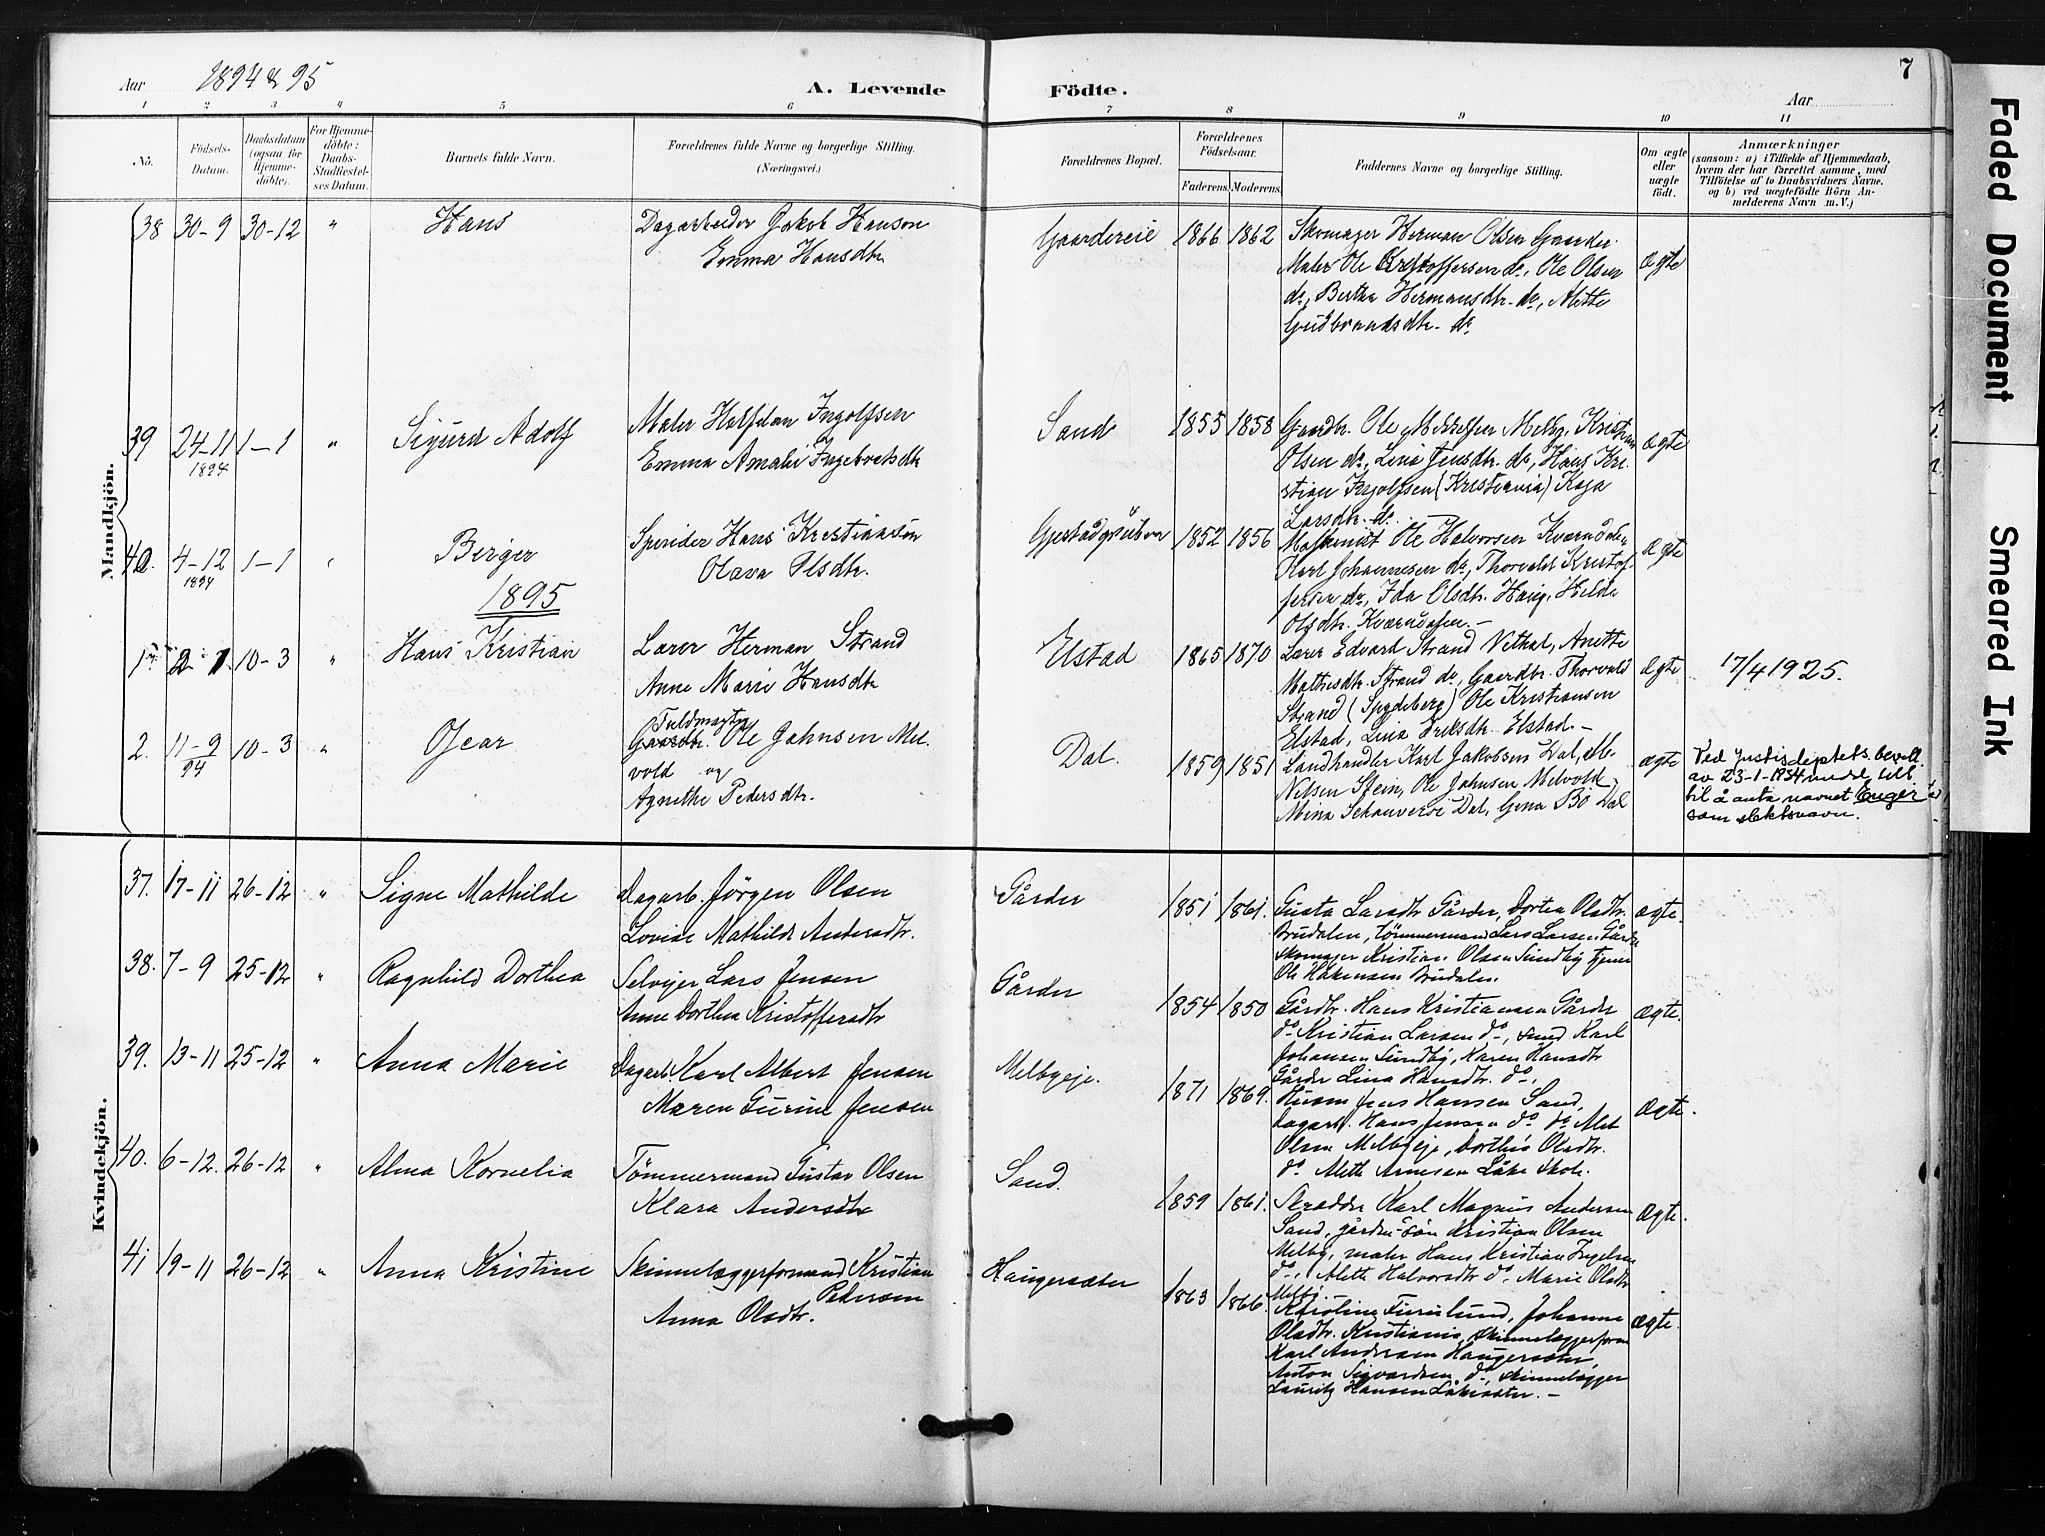 Aar 1894 & 95 A. Levende Födte. Aar 7
1 2 3 4 5 6 7 8 9 10 11
No. Födsels-Datum. Daabsdatum (ogsaa for Hjemmedöbte). For Hjemmedöbte: Daabs-Stadfæstelses Datum. Barnets fulde Navn. Forældrenes fulde Navne og borgerlige Stilling. (Næringsvei.) Forældrenes Bopæl. Forældrenes Födselsaar. Faderens. Moderens. Faddernes Navne og borgerlige Stilling. Om ægte eller uægte födt. Anmærkninger (saasom: a) i Tilfælde af Hjemmedaab, hvem der har forrettet samme, med Tilföielse af to Daabsvidners Navne, og b) ved uægtefödte Börn Anmelderens Navn m. V.)
Mandkjön.
38 30-9 30-12 " Hans Dagarbeider Jakob Hanson Gaardereie 1866 1862 Skomager Herman Olsen Gaarder
Emma Hansdtr. Maler Ole Cristoffersen do, Ole Olsen ægte
do, Bertha Hermansdtr. do, Alette
Gudbrandsdtr. do
39 24-11 1-1 " Sigurd Adolf Maler Halfdan Ingolfsen Sand 1855 1858 Gaardbr. Ole Mikkelsen Melby, Kristian
1894 Emma Amalie Ingebretsdtr Olsen do, Lina Jensdtr. do, Hans Kri- ægte
stian Ingolfsen (Kristiania) Kaja
Larsdtr. do.
40. 4-12 1-1 Birger Hans Kristiansen 1852 1856 Maskinist Ole Halvorsen Kværndalen
1894 Olava Olsdtr. Karl Johannesen do, Thorvald Kristof- ægte
1895 fersen do, Ida Olsdtr. Haug, Hilda
Olsdtr. Kværndalen. -
1 10-3 " Hans Kristian Lærer Herman Strand Elstad 1865 1870 Lærer Edvard Strand Anette
Anne Marie Hansdtr Mathisdtr. Strand do, Gaardbr. Thorvald ægte 17/4 1925.
Strand (Spydeberg) Ole Kristiansen
Elstad, Lina Eriksdtr. Elstad. -
2. 11-9 10-3 " Fuldmægtig
94 Gaardbr. Ole Johnsen Mel- Dal. 1859 1851 Landhandler Karl Jakobsen Dal, ægte Ved Justisdeptets bevill.
vold og Nilsen Stein, Ole Johnsen Melvold av 23-1-1934
Agnethe Pedersdtr. Mina Dal, Gina Bö Dal til å anta navnet Enger
som slektsnavn.
Kvindekjön.
37. 17-11 26-12 " Signe Mathilde Dagarb. Jörgen Olsen Gårder 1851 1861. Gusta Larsdtr Gårder, Dortea Olsdtr. ægte.
Lovise Mathilde Andersdtr. Brudalen, Tömmermand Lars Larsen Gårder
skomager Kristian Olsen Sundby tjener
Ole Håkensen Brudalen.
38. 7-9 25-12 " Ragnhild Dorthea Selveier Lars Jensen Gårder 1854 1850 Gårdbr. Hans Kristiansen Gårder ægte.
Anne Dorthea Kristoffersdtr do Kristian Larsen do, Karl
Johansen Sundby, Karen Hansdtr
Gårder Lina Hansdtr. do.
39. 13-11 25-12 " Anna Marie Dagarb. Karl Albert Jensen Melbyeje. 1871 1869. Husm Jens Hansen Sand,
Maren Gurine Jensen Dagarb. Hans Jensen do do ægte.
Olsen Melbyeje, Olsdtr.
do Alette Arnesen
40. 6-12. 26-12 " Alma Kornelia Tömmermand Gustav Olsen Sand. 1859 1861. Skrædder Karl Magnus Andersen ægte.
Klara Andersdtr Sand, Kristian Olsen
Melby, maler Hans Kristian
do, Alette Halvorsdtr do. Marie Olsdtr
Melby.
41 19-11 26-12 " Anna Kristine Kristian Haugersæter 1863 1866. Karoline Furulund, Johanne ægte.
Pedersen Olsdtr. Kristiania,
Anna Olsdtr. Karl Andersen Haugersæter,
Anton Sigvardsen do,
Lauritz Hansen
Faded Document Smeared Ink